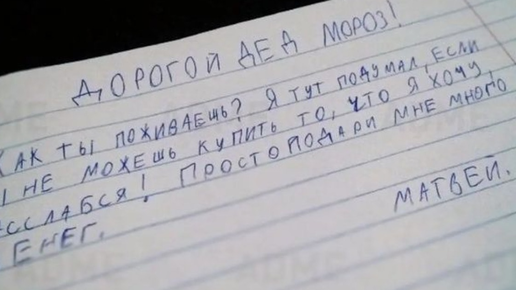 ДОРОГОЙ ДЕД МОРОЗ!
КАК ТЫ ПОЖИВАЕШЬ? Я ТУТ ПОДУМАЛ, ЕСЛИ
НЕ МОЖЕШЬ КУПИТЬ ТО, ЧТО Я ХОЧУ,
ССЛАБСЯ! ПРОСТО ПОДАРИ МНЕ МНОГО
ЕНЕГ.
МАТВЕЙ.